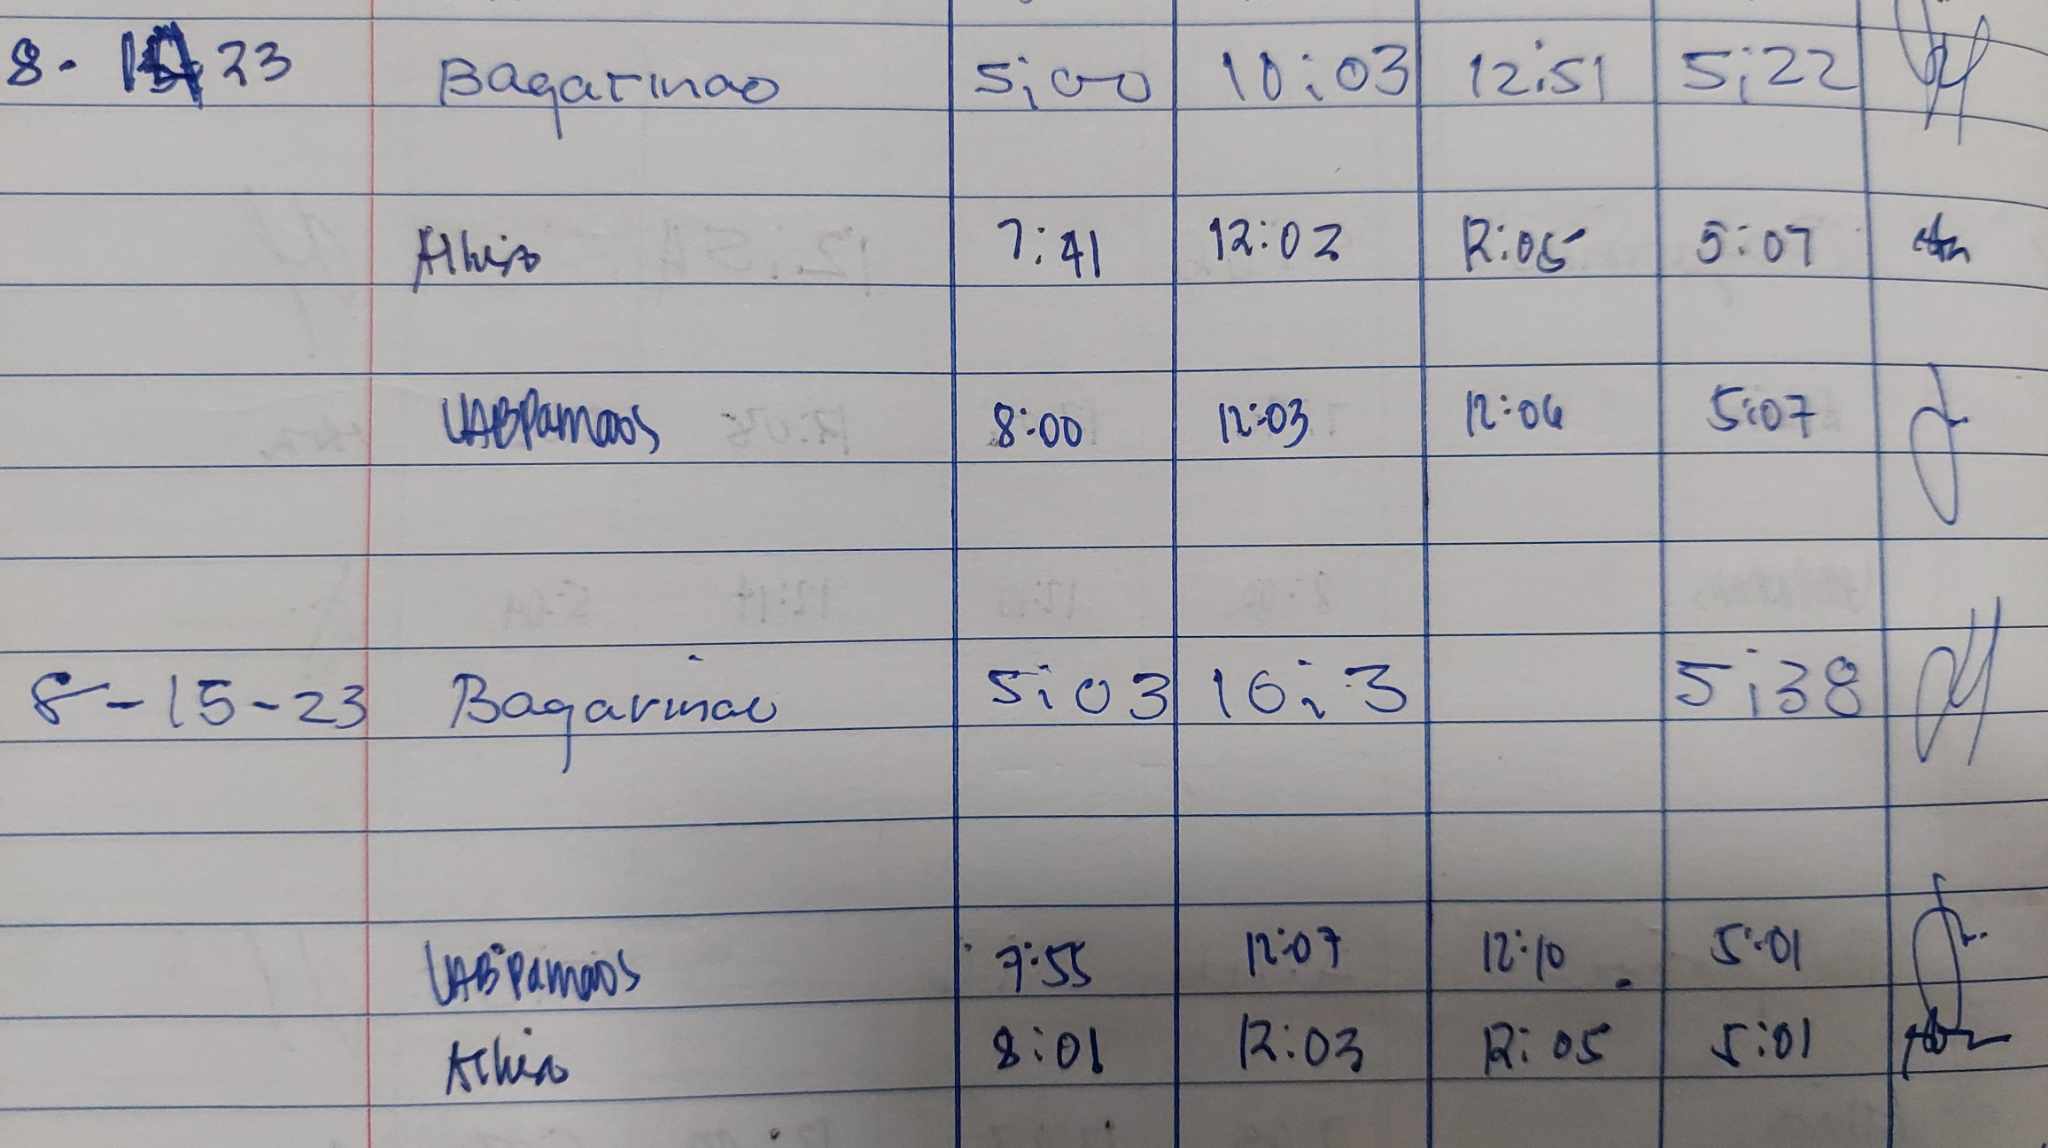 8- 14 23 Bagarinao 5:00 10:03 12:51 5:22
7:41 12:02 12:05 5:07
UABPamaos 8:00 12:03 12:06 5:07
8-15-23 Bagarinao 5:03 10:3 5:38
UABPamaos 7:55 12:07 12:10 5:01
8:01 12:03 12:05 5:01